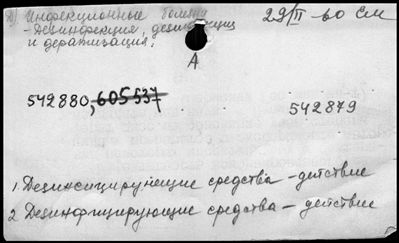 Д) Инфекционные болезни 29/II-60 См
- Дезинфекция, дезинсекция
и дератизация.
А
542880, 605537
542879
1. Дезинсицирующие средства - действие
2 Дезинфицирующие средства - действие